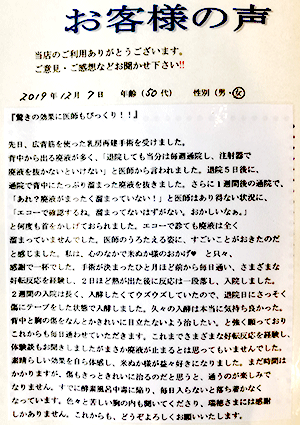 お客様の声
当店のご利用ありがとうございます。
ご意見・ご感想などお聞かせ下さい!!
2019年12月7日 年齢(50代) 性別(男・女)
『驚きの効果に医師もびっくり!!』
先日、広背筋を使った乳房再建手術を受けました。
背中から出る廃液が多く、「退院しても当分は毎週通院し、注射器で
廃液を抜かないといけない」と医師から言われました。退院5日後に、
通院で背中にたっぷり溜まった廃液を抜きました。さらに1週間後の通院で、
「あれ?廃液がまったく溜まっていない!」と医師はあり得ない状況に、
「エコーで確認するね。溜まってないはずがない。おかしいなぁ。」
と何度も首をかしげておられました。エコーで診ても廃液は全く
溜まっていませんでした。医師のうろたえる姿に、すごいことがおきたのだ
と感じました。私は、心のなかで米ぬか様のおかげ♥ と只々、
感謝で一杯でした。手術が決まったひと月ほど前から毎日通い、さまざまな
好転反応を経験し、2日ほど熱が出た後に反応は一段落し、入院しました。
2週間の入院は長く、入酵したくてウズウズしていたので、退院日にさっそく
傷にテープをした状態で入酵しました。久々の入酵は本当に気持ち良かった。
背中と胸の傷をなんとかきれいに目立たないよう治したい。と強く願っており
これからも毎日通わせていただきます。これまでさまざまな好転反応を経験し、
体験談もお聞きしましたがまさか廃液が止まるとは思ってもいませんでした。
素晴らしい効果を自ら体感し、米ぬか様が益々好きになりました。まだ時間は
かかりますが、傷もきっときれいに治るのだと思うと、通うのが楽しみで
なりません。すでに酵素風呂中毒に陥り、毎日入らないと落ち着かなく
なっています。色々と苦しい胸の内も聞いてくださり、瑞穂さまには感謝
しかありません。これからも、どうぞよろしくお願いいたします。